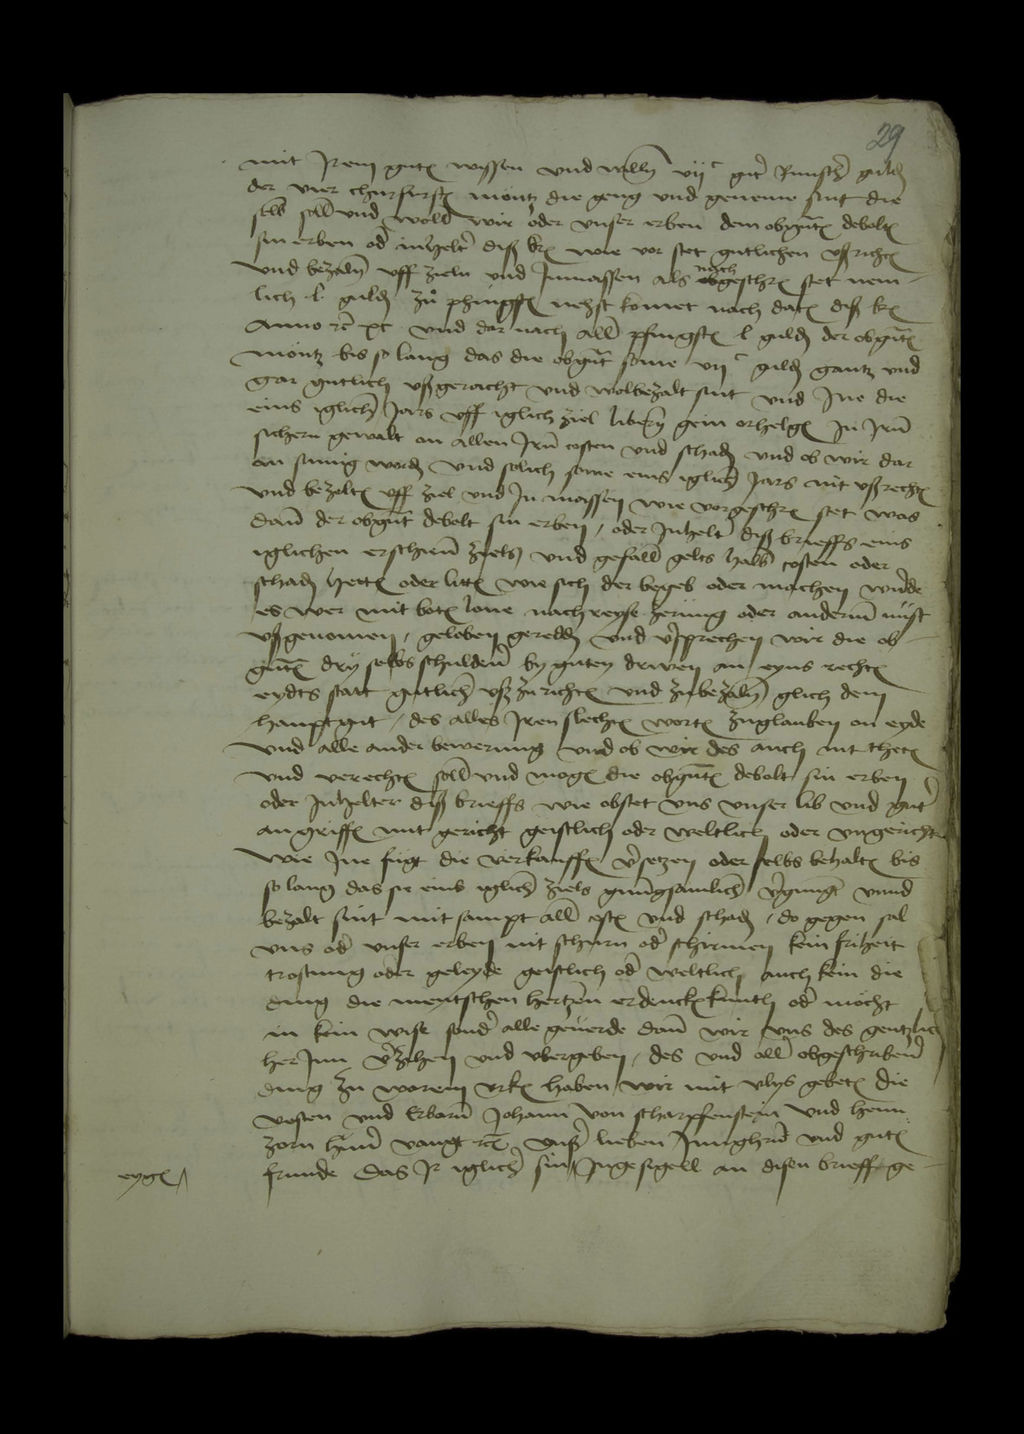 29
mit Jrem guten wissen und willn vijc gut Rinsch gulden
der vier churfursten montz die geng und geneme sint die
selb soll und woll wir oder unser erben dem obgnten debolt
sin erben od inhelt diß brieffs wie vor stet gutlichen ußrichten
und bezaln uff zieln und Jnmassen als nach geschrn stet nem-
lich l gulden zu phingsten nehst komet nach dato diß brieffs
Anno rc xc und dar nach all pfingsten l gulden der obgnten
montz bis so lang das die obgnt some vijc gulden gantz und
gar gutlich ußgeracht und wolbezalt sint und Jne die
eins iglichen Jars uff iglich ziel libern gein orhelgen in Jrn
sichern gewalt on allen Jrn costen und schaden und ob wir dar
an sumig worden und solich some eins iglichen Jars nit ußrechten
und bezalten uff ziel und Jn massen wie vorgeschrn stet was
dann der obgnt debolt sin erben / oder Jnhelt diß brieffs eins
iglichen erschinn ziels und gefalln gelts halb costen oder
schaden hetten oder litten wie sich der begeb oder machen wurde
es wer mit boten lone nachreyse zerung oder anderm nust
ußgenomen / geloben geredden und versprechen wir die ob-
gnten dry selbsschuldener by guten drwen an eyns rechten
eydts statt gutlich uß zu richten und zu bezaln glich dem
hauptgut / des alles Jren slechten worten zuglauben on eyde
und alle ander bewerung und ob wir des auch nit theten
und verechten soll und mogen die obgnten debolt sin erben
oder Jnhelter diß brieffs wie obstet uns unser lib und gut
angriffen mit gericht geistlich oder weltlich oder ungericht
wie Jne fugt die verkauffen versetzen oder selbs behalten bis
so lang das sie eins iglichen ziels gnungsamlich vergnugt unnd
bezalt sint mit sampt alln costen und schaden / do gegen sal
uns od unser erben nit schurn od schirmen kein friheit
trostung oder geleyde geistlich od weltlich auch kein die
ding die mentschen hertzen erdencken kunth od mocht
in kein wise sond alle geuerde dann wir uns des gentzlich
her Jnn verzihen und ubergeben / des und all obgeschriben
ding zu worem urkund haben wir mit vlys gebeten die
vesten und Erbarn Johann von scharpfenstein und henn
zorn unser lieben Jungherrn und guten
frunde das Jr iglicher sin Jngesigell an disen brieff ge-
eygen